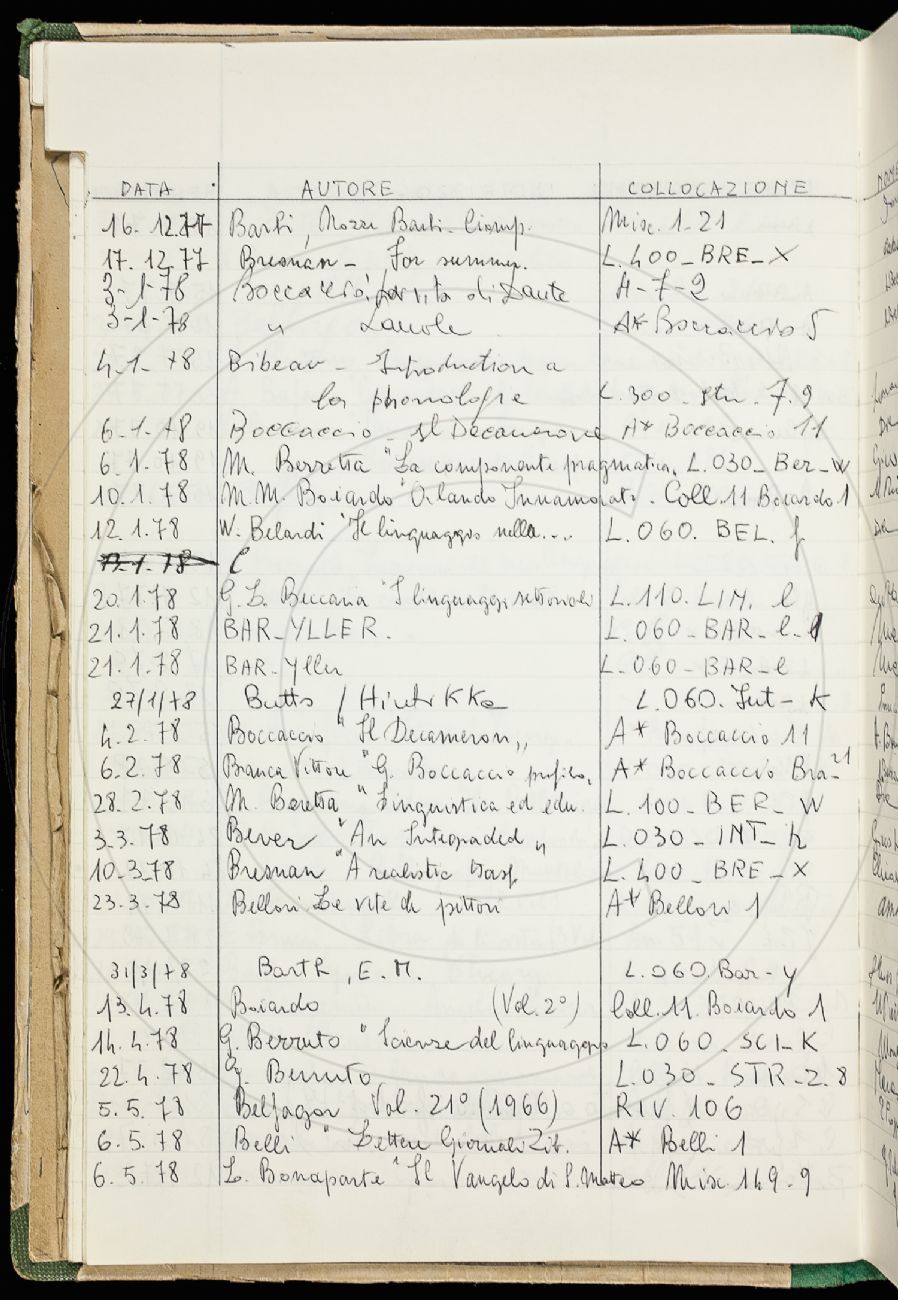 DATA AUTORE COLLOCAZIONE
16. 12.77 Barbi, Misc. 1-21
17. 12.77 Bresnan - For summer. L.400-BRE-X
3-1-78 Boccaccio vita di Dante H-7-2
3-1-78 " A* Boccaccio 5
4.1-78 Bibeau - Introduction a
la phonologie L.300- 7.9
6-1-78 Boccaccio - Il Decamerone A* Boccaccio 11
6.1.78 M. Berretta "La componente pragmatica. L.030-Ber-W
10.1.78 M.M. Boiardo "Orlando Innamorato. Coll. 11 Boiardo 1
12.1.78 W. Belardi "Il linguaggio nella.... L.060. BEL. f
20.1.78 G.L. Beccaria "I linguaggi settoriali L.110. LIN. l
21.1.78 BAR-YLLER. L.060-BAR-l-1
21.1.78 BAR-Yller L-060-BAR-l
27/1/78 Butts / Hintikka L.060. K
4.2.78 Boccaccio "Il Decameron" A* Boccaccio 11
6.2.78 Branca Vittore "G. Boccaccio profilo. A* Boccaccio Bra-21
28.2.78 M. Beretta "Linguistica ed edu. L.100-BER-W
3-3.78 Bever "An Integraded" L.030-INT-h
10-3-78 Bresnan "A realistic L.400-BRE-X
23.3.78 Bellori Le vite di pittori A* Bellori 1
31/3/78 Barth, E.M. L.060.Bar-y
13.4.78 Boiardo (Vol. 2°) Coll.11. Boiardo 1
14.4.78 G. Berruto "Scienze del linguaggio L.060-SCI-K
22.4.78 G. Berruto L.030-STR-2.8
5.5.78 Belfagor Vol. 21° (1966) RIV. 106
6.5.78 Belli "Lettere Giornali Zib. A* Belli 1
6.5.78 L. Bonaparte "Il Vangelo di S. Matteo Misc. 149-9